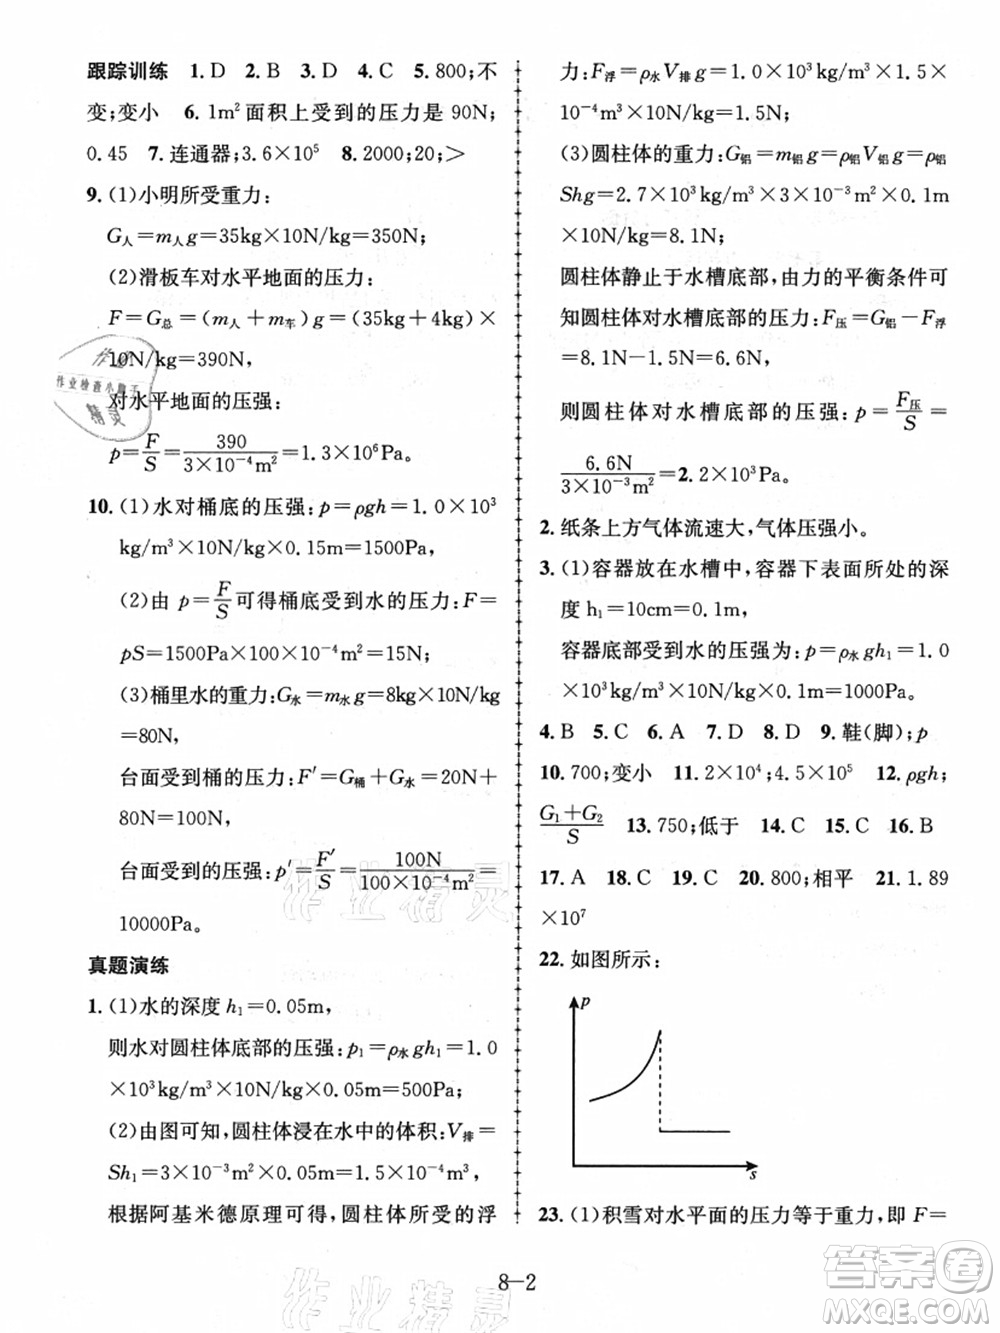 跟踪训练 1.D 2.B 3.D 4.C 5.800;不
变;变小 6.1m²面积上受到的压力是 90N;
0.45 7.连通器;3.6×10⁵ 8.2000;20;>
9.(1)小明所受重力:
G人=m人g=35kg×10N/kg=350N;
(2)滑板车对水平地面的压力:
F=G总=(m人+m车)g=(35kg+4kg)×
10N/kg=390N,
对水平地面的压强:
p=F/S=390/(3×10⁻⁴m²)=1.3×10⁶Pa。
10.(1)水对桶底的压强:p=ρgh=1.0×10³
kg/m³×10N/kg×0.15m=1500Pa,
(2)由 p=F/S可得桶底受到水的压力:F=
pS=1500Pa×100×10⁻⁴m²=15N,
(3)桶里水的重力:G水=m水g=8kg×10N/kg
=80N,
台面受到桶的压力:F′=G桶+G水=20N+
80N=100N,
台面受到的压强:p′=F′/S=100N/(100×10⁻⁴m²)=
10000Pa。
真题演练
1.(1)水的深度 h₁=0.05m,
则水对圆柱体底部的压强:p₁=ρ水gh₁=1.0
×10³kg/m³×10N/kg×0.05m=500Pa;
(2)由图可知,圆柱体浸在水中的体积:V排=
Sh₁=3×10⁻³m²×0.05m=1.5×10⁻⁴m³,
根据阿基米德原理可得,圆柱体所受的浮
力:F浮=ρ水V排g=1.0×10³kg/m³×1.5×
10⁻⁴m³×10N/kg=1.5N;
(3)圆柱体的重力:G铝=m铝g=ρ铝V铝g=ρ铝
Shg=2.7×10³kg/m³×3×10⁻³m²×0.1m
×10N/kg=8.1N,
圆柱体静止于水槽底部,由力的平衡条件可
知圆柱体对水槽底部的压力:F压=G铝-F浮
=8.1N-1.5N=6.6N,
则圆柱体对水槽底部的压强:p=F压/S=
6.6N/(3×10⁻³m²)=2.2×10³Pa。
2.纸条上方气体流速大,气体压强小。
3.(1)容器放在水槽中,容器下表面所处的深
度 h₁=10cm=0.1m,
容器底部受到水的压强为:p=ρ水gh₁=1.0
×10³kg/m³×10N/kg×0.1m=1000Pa。
4.B 5.C 6.A 7.D 8.D 9.鞋(脚);p
10.700;变小 11.2×10⁴;4.5×10⁵ 12.ρgh;
(G₁+G₂)/S 13.750;低于 14.C 15.C 16.B
17.A 18.C 19.C 20.800;相平 21.1.89
×10⁷
22.如图所示:
p
s
23.(1)积雪对水平面的压力等于重力,即 F=
8-2
作业
作业检查小助手
精灵
作业精灵
作业精灵
答案圈
MXQE.COM